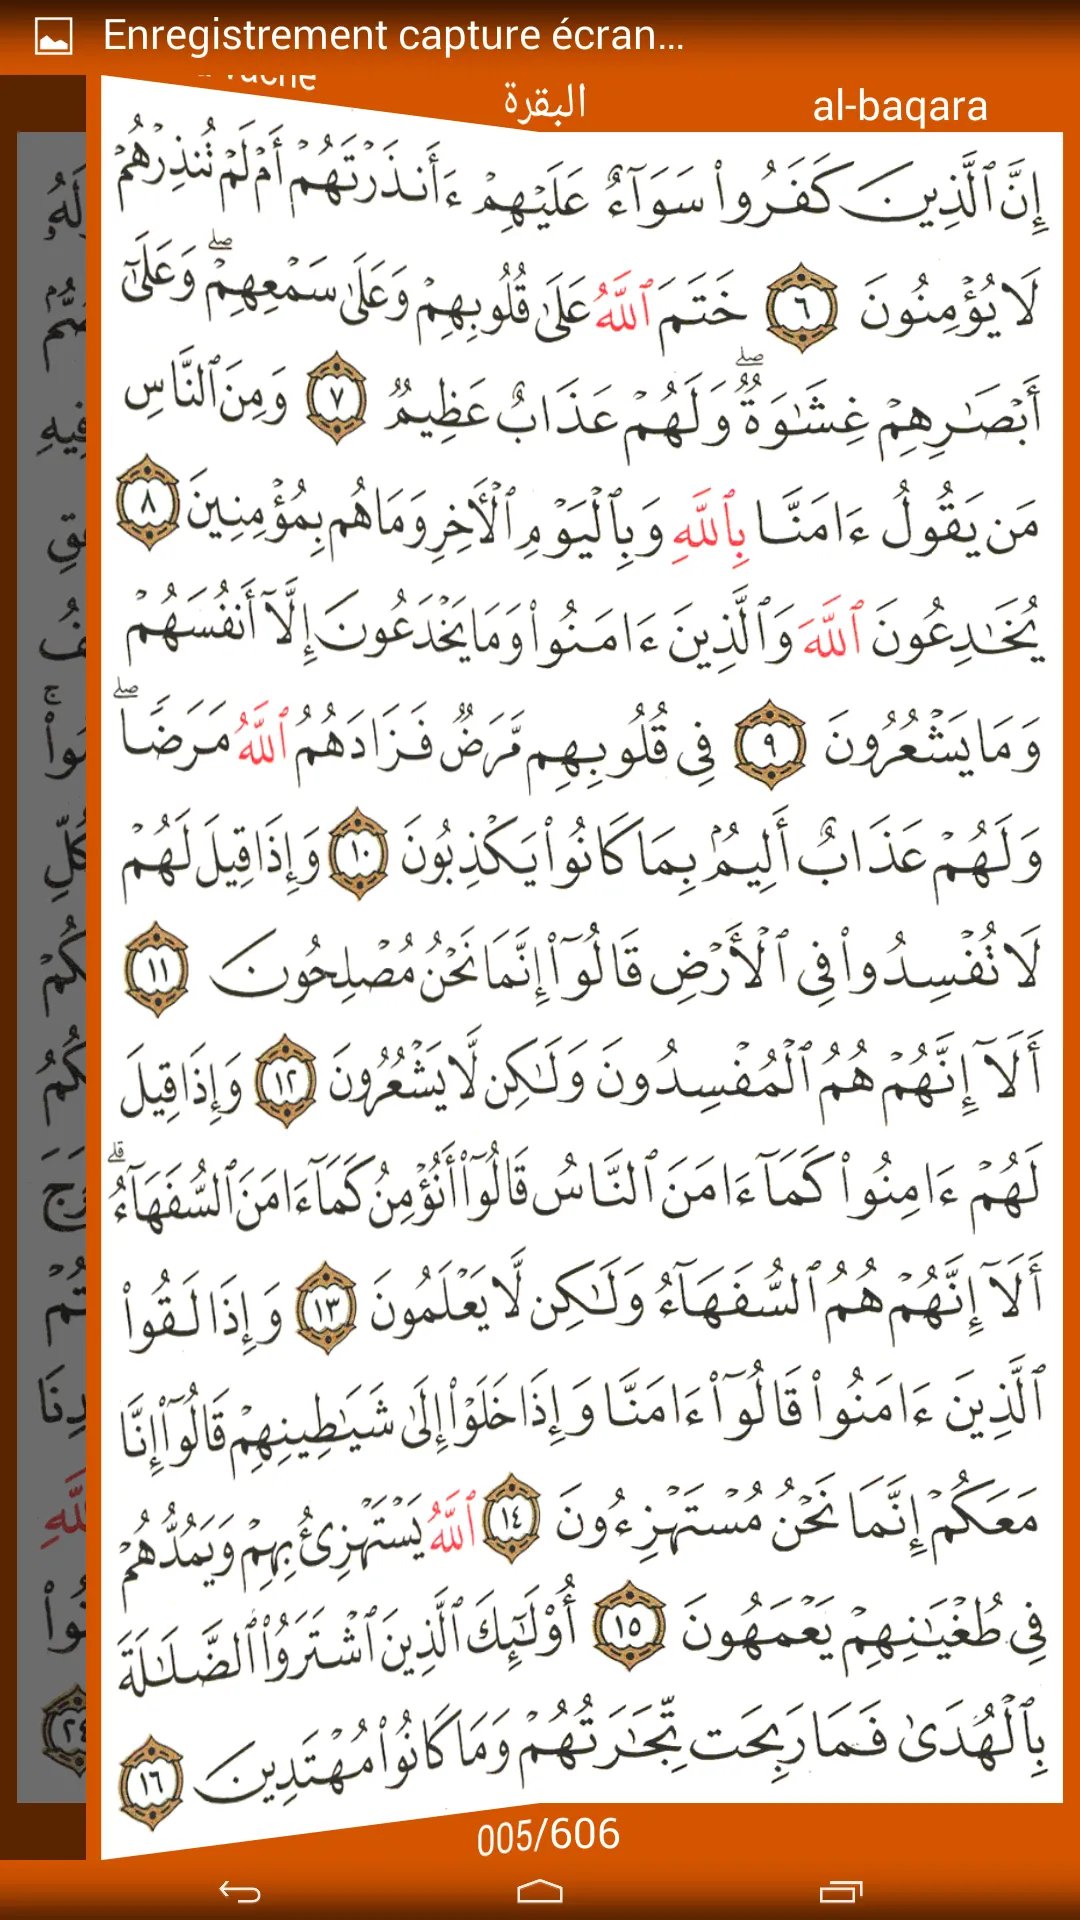 Enregistrement capture écran...
البقرة
al-baqara
إِنَّ ٱلَّذِينَ كَفَرُوا۟ سَوَآءٌ عَلَيْهِمْ ءَأَنذَرْتَهُمْ أَمْ لَمْ تُنذِرْهُمْ
لَا يُؤْمِنُونَ ٦ خَتَمَ ٱللَّهُ عَلَىٰ قُلُوبِهِمْ وَعَلَىٰ سَمْعِهِمْ ۖ وَعَلَىٰٓ
أَبْصَـٰرِهِمْ غِشَـٰوَةٌ ۖ وَلَهُمْ عَذَابٌ عَظِيمٌ ٧ وَمِنَ ٱلنَّاسِ
مَن يَقُولُ ءَامَنَّا بِٱللَّهِ وَبِٱلْيَوْمِ ٱلْـَٔاخِرِ وَمَا هُم بِمُؤْمِنِينَ ٨
يُخَـٰدِعُونَ ٱللَّهَ وَٱلَّذِينَ ءَامَنُوا۟ وَمَا يَخْدَعُونَ إِلَّآ أَنفُسَهُمْ
وَمَا يَشْعُرُونَ ٩ فِى قُلُوبِهِم مَّرَضٌ فَزَادَهُمُ ٱللَّهُ مَرَضًا ۖ
وَلَهُمْ عَذَابٌ أَلِيمٌۢ بِمَا كَانُوا۟ يَكْذِبُونَ ١٠ وَإِذَا قِيلَ لَهُمْ
لَا تُفْسِدُوا۟ فِى ٱلْأَرْضِ قَالُوٓا۟ إِنَّمَا نَحْنُ مُصْلِحُونَ ١١
أَلَآ إِنَّهُمْ هُمُ ٱلْمُفْسِدُونَ وَلَـٰكِن لَّا يَشْعُرُونَ ١٢ وَإِذَا قِيلَ
لَهُمْ ءَامِنُوا۟ كَمَآ ءَامَنَ ٱلنَّاسُ قَالُوٓا۟ أَنُؤْمِنُ كَمَآ ءَامَنَ ٱلسُّفَهَآءُ ۗ
أَلَآ إِنَّهُمْ هُمُ ٱلسُّفَهَآءُ وَلَـٰكِن لَّا يَعْلَمُونَ ١٣ وَإِذَا لَقُوا۟
ٱلَّذِينَ ءَامَنُوا۟ قَالُوٓا۟ ءَامَنَّا وَإِذَا خَلَوْا۟ إِلَىٰ شَيَـٰطِينِهِمْ قَالُوٓا۟ إِنَّا
مَعَكُمْ إِنَّمَا نَحْنُ مُسْتَهْزِءُونَ ١٤ ٱللَّهُ يَسْتَهْزِئُ بِهِمْ وَيَمُدُّهُمْ
فِى طُغْيَـٰنِهِمْ يَعْمَهُونَ ١٥ أُو۟لَـٰٓئِكَ ٱلَّذِينَ ٱشْتَرَوُا۟ ٱلضَّلَـٰلَةَ
بِٱلْهُدَىٰ فَمَا رَبِحَت تِّجَـٰرَتُهُمْ وَمَا كَانُوا۟ مُهْتَدِينَ ١٦
005/606